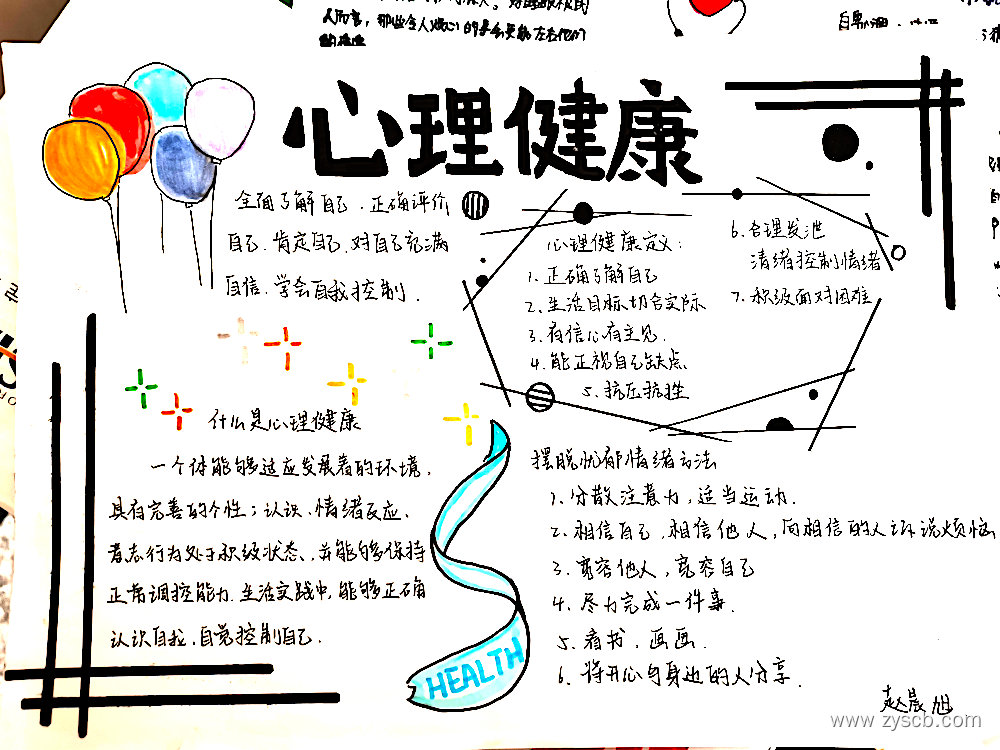 心理健康
全面了解自己、正确评价
自己、肯定自己、对自己充满
自信、学会自我控制.
心理健康定义:
1. 正确了解自己
2. 生活目标切合实际
3. 有信心有主见
4. 能正视自己缺点
5. 抗压抗挫
6. 合理发泄
情绪控制情绪
7. 积极面对困难
什么是心理健康
一个体能够适应发展着的环境,
具有完善的个性; 认识、情绪反应、
意志行为处于积极状态、并能够保持
正常调控能力. 生活实践中, 能够正确
认识自我, 自觉控制自己.
HEALTH
摆脱忧郁情绪方法
1. 分散注意力, 适当运动.
2. 相信自己, 相信他人, 向相信的人诉说烦恼
3. 宽容他人, 宽容自己
4. 尽力完成一件事.
5. 看书, 画画.
6. 将开心与身边的人分享.
赵晨旭
www.zyscb.com